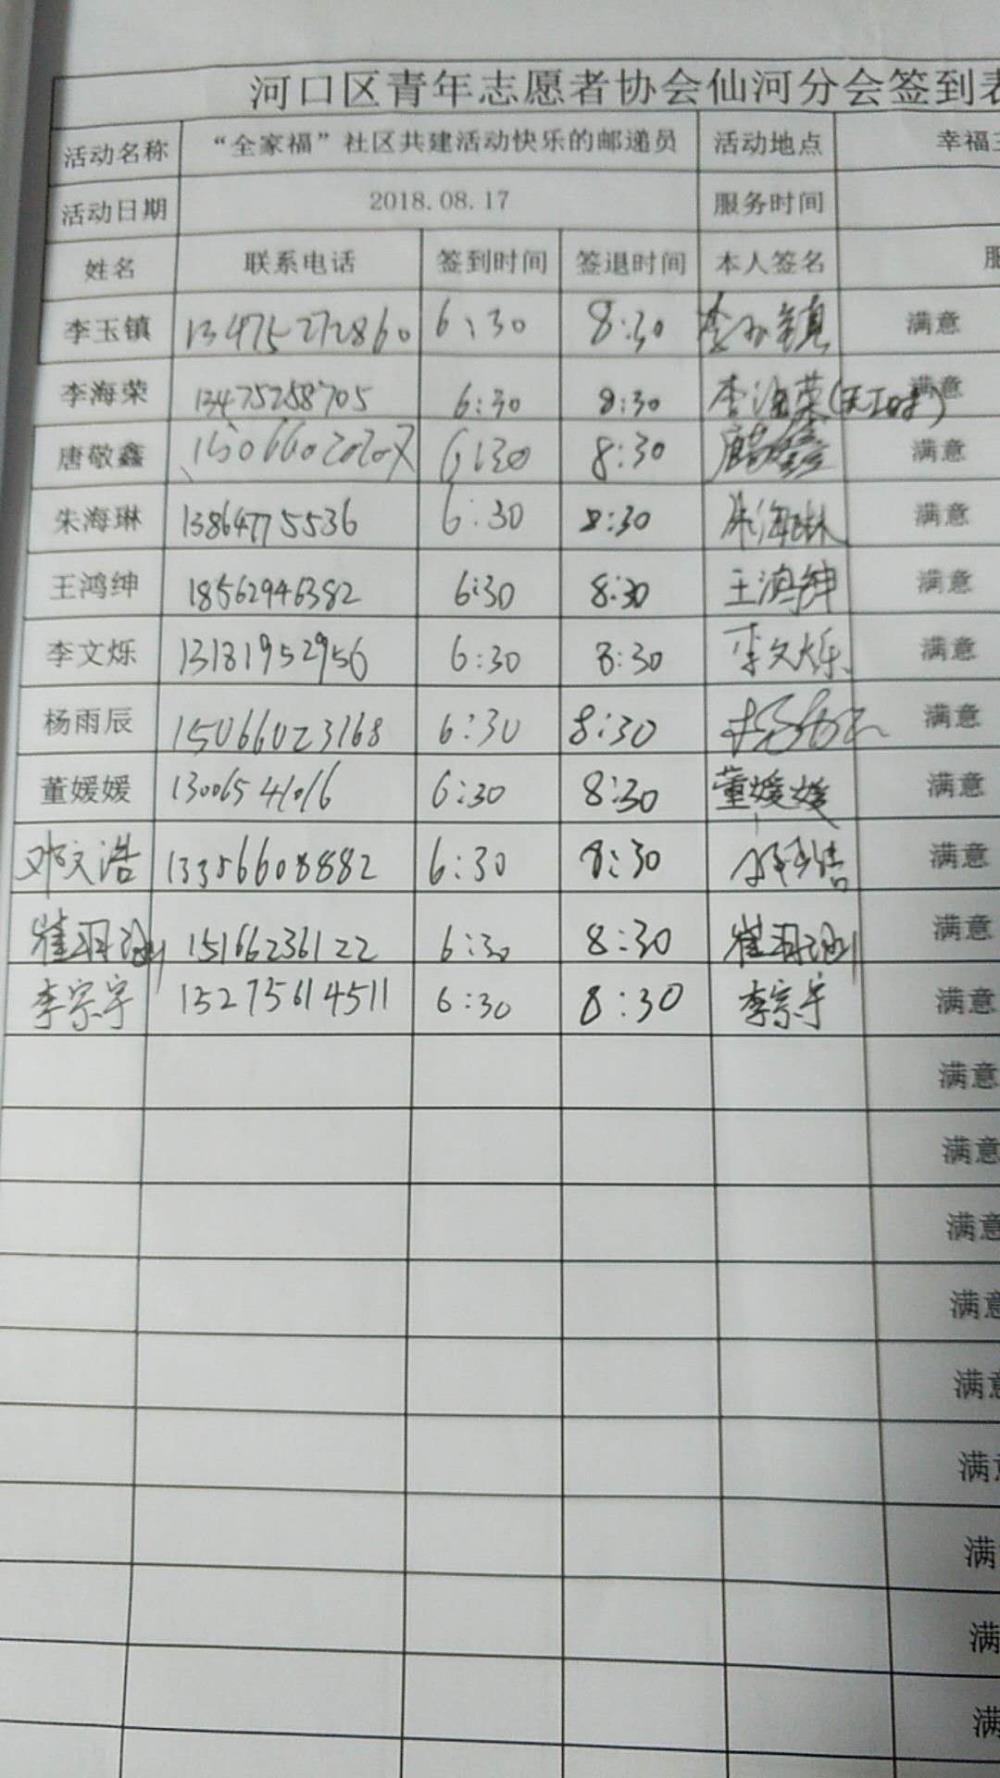 河口区青年志愿者协会仙河分会签到表
活动名称 “全家福”社区共建活动快乐的邮递员 活动地点 幸福
活动日期 2018.08.17 服务时间
姓名 联系电话 签到时间 签退时间 本人签名
李玉镇 13475272860 6:30 8:30 李玉镇 满意
李海荣 13475258705 6:30 8:30 李海荣 满意
唐敬鑫 6:30 8:30 满意
朱海琳 13864775536 6:30 8:30 朱海琳 满意
王鸿绅 18562946382 6:30 8:30 王鸿绅 满意
李文烁 13181952956 6:30 8:30 李文烁 满意
杨雨辰 15066023168 6:30 8:30 杨雨辰 满意
董媛媛 6:30 8:30 董媛媛 满意
邓文浩 13356608882 6:30 8:30 满意
15166236122 6:30 8:30 满意
李宗宇 15275614511 6:30 8:30 李宗宇 满意
满意
满意
满意
满意
满意
满
满
满
满